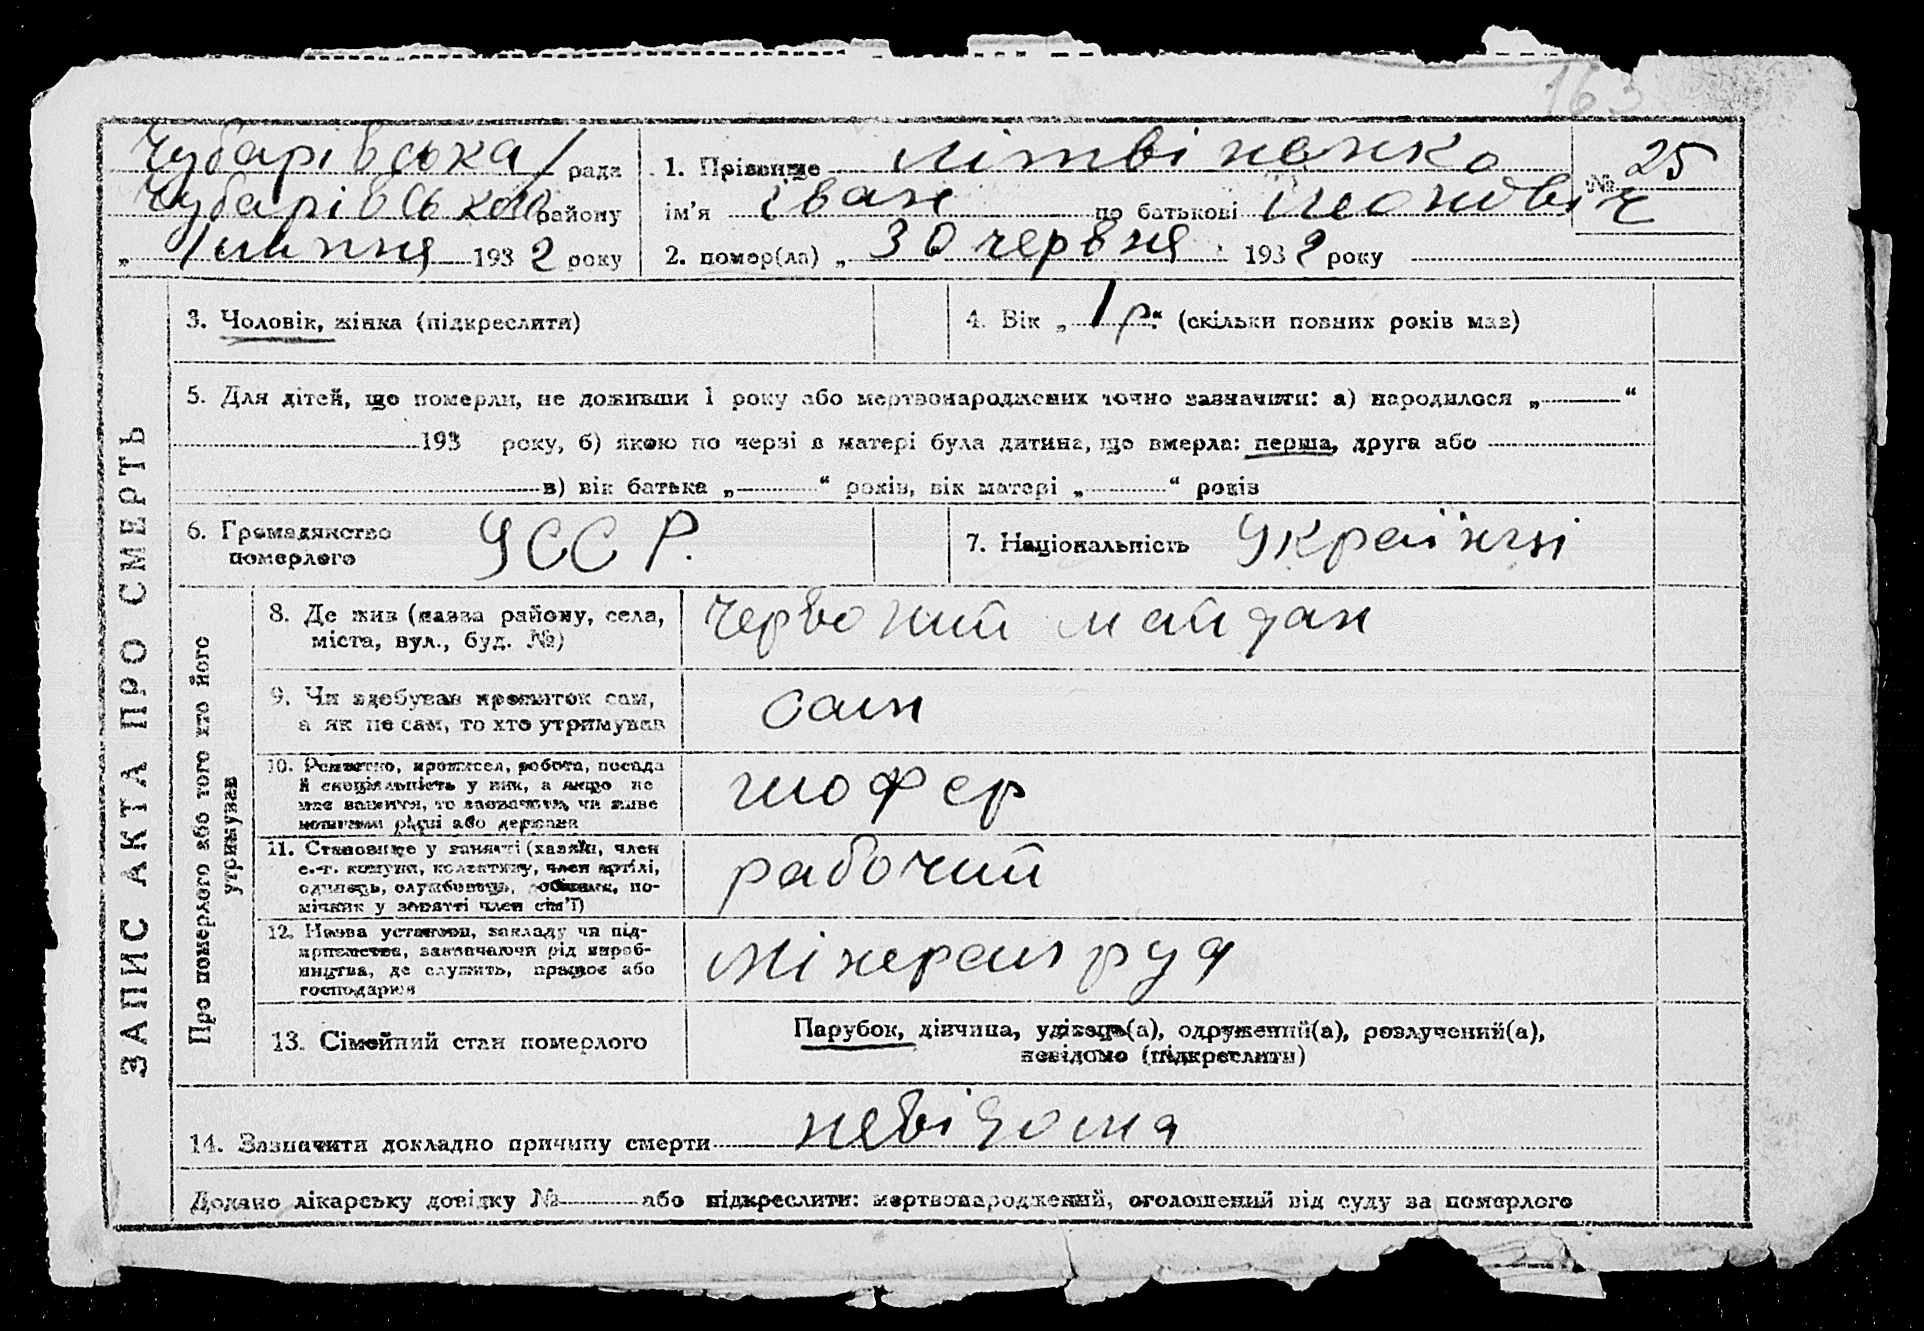 163
Чубарівська рада
Чубарівського району
„ 1 липня 1932 року
1. Прізвище Літвіненко
№ 25
ім'я Іван по батькові
2. помер(ла) „ 30 червня 1932 року
ЗАПИС АКТА ПРО СМЕРТЬ
3. Чоловік, жінка (підкреслити)
4. Вік „ 1 р." (скільки повних років мав)
5. Для дітей, що померли, не доживши 1 року або мертвонароджених точно зазначити: а) народилося „ “
193 року, б) якою по черзі в матері була дитина, що вмерла: перша, друга або
в) вік батька „ “ років, вік матері „ “ років
6. Громадянство
померлого
УССР.
7. Національність Українці
Про померлого або того хто його
утримував
8. Де жив (назва району, села,
міста, вул., буд. №)
Червоний майдан
9. Чи здобував прожиток сам,
а як не сам, то хто утримував
сам
10. Ремество, промисел, робота, посада
й спеціяльність у них, а якщо не
має заняття, то зазначити, чи живе
коштами рідні або держави
шофер
11. Становище у занятті (хазяїн, член
с.-г. комуни, колективу, член артілі,
одинець, службовець, робітник, по-
мічник у занятті член сім'ї)
рабочий
12. Назва установи, закладу чи під-
приємства, зазначаючи рід вироб-
ництва, де служить, працює або
господарює
Мінералруд
13. Сімейний стан померлого
Парубок, дівчина, удівець(а), одружений(а), розлучений(а),
невідомо (підкреслити)
14. Зазначити докладно причину смерти невідома
Додано лікарську довідку № або підкреслити: мертвонароджений, оголошений від суду за померлого